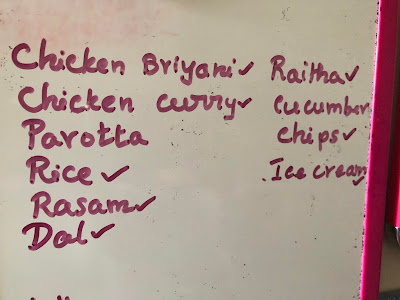 Chicken Briyani✓
Chicken curry✓
Parotta
Rice ✓
Rasam✓
Dal✓
Raitha✓
Cucumber
chips✓
Ice cream